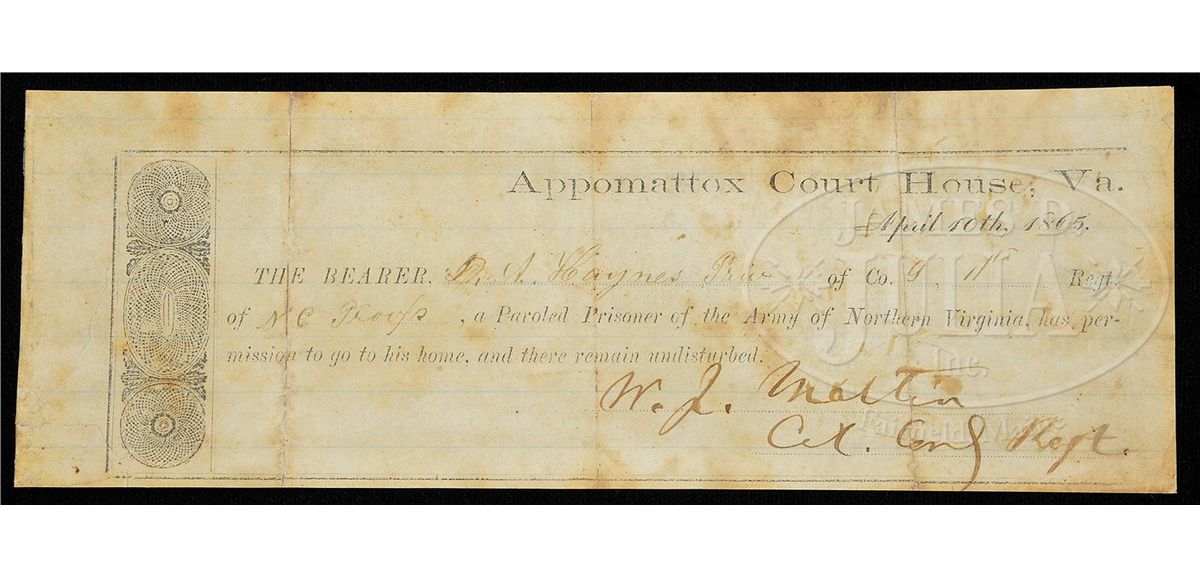 Appomattox Court House, Va.
April 10th, 1865.
THE BEARER, D. A. Haynes Priv of Co. G, 11th Regt.
of N C Troops, a Paroled Prisoner of the Army of Northern Virginia, has per-
mission to go to his home, and there remain undisturbed.
W. J. Martin
Col. Comg Regt.
JAMES D.
JULIA
Inc.
Fairfield, Ma